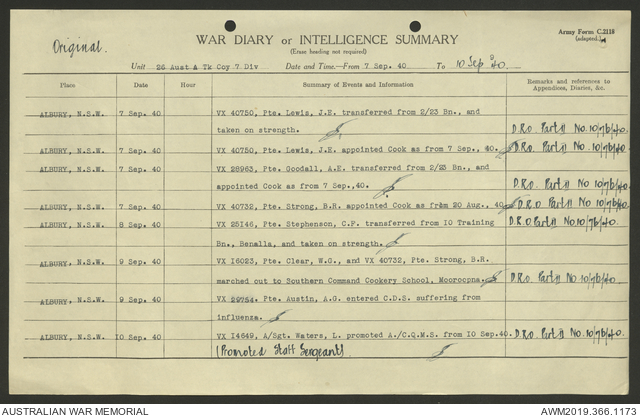 Original.
WAR DIARY or INTELLIGENCE SUMMARY
(Erase heading not required)
Army Form C.2118
(adapted.)
Unit 26 Aust A Tk Coy 7 Div Date and Time.—From 7 Sep. 40 To 10 Sep 40.
Place Date Hour Summary of Events and Information Remarks and references to Appendices, Diaries, &c.
ALBURY, N.S.W. 7 Sep. 40 VX 40750, Pte. Lewis, J.E. transferred from 2/23 Bn., and
taken on strength. D.R.O Part II No. 10/7/b/40.
ALBURY, N.S.W. 7 Sep. 40 VX 40750, Pte. Lewis, J.E. appointed Cook as from 7 Sep., 40. D.R.O. Part II No 10/7/b/40.
ALBURY, N.S.W. 7 Sep. 40 VX 28963, Pte. Goodall, A.E. transferred from 2/23 Bn., and
appointed Cook as from 7 Sep.,40. D.R.O. Part II No 10/7/b/40.
ALBURY, N.S.W. 7 Sep. 40 VX 40732, Pte. Strong, B.R. appointed Cook as from 20 Aug., 40 D.R.O Part II No 10/7/b/40.
ALBURY, N.S.W. 8 Sep. 40 VX 25146, Pte. Stephenson, C.F. transferred from 10 Training D.R.O Part II No. 10/7/b/40.
Bn., Benalla, and taken on strength.
ALBURY, N.S.W. 9 Sep. 40 VX 16023, Pte. Clear, W.G., and VX 40732, Pte. Strong, B.R.
marched out to Southern Command Cookery School, Mooroopna. D.R.O. Part II No 10/7/b/40.
ALBURY, N.S.W. 9 Sep. 40 VX 29754, Pte. Austin, A.G. entered C.D.S. suffering from
influenza.
ALBURY, N.S.W. 10 Sep. 40 VX 14649, A/Sgt. Waters, L. promoted A./C.Q.M.S. from 10 Sep.40. D.R.O. Part II No. 10/7/b/40.
(Promoted Staff Sergeant)
AUSTRALIAN WAR MEMORIAL AWM2019.366.1173